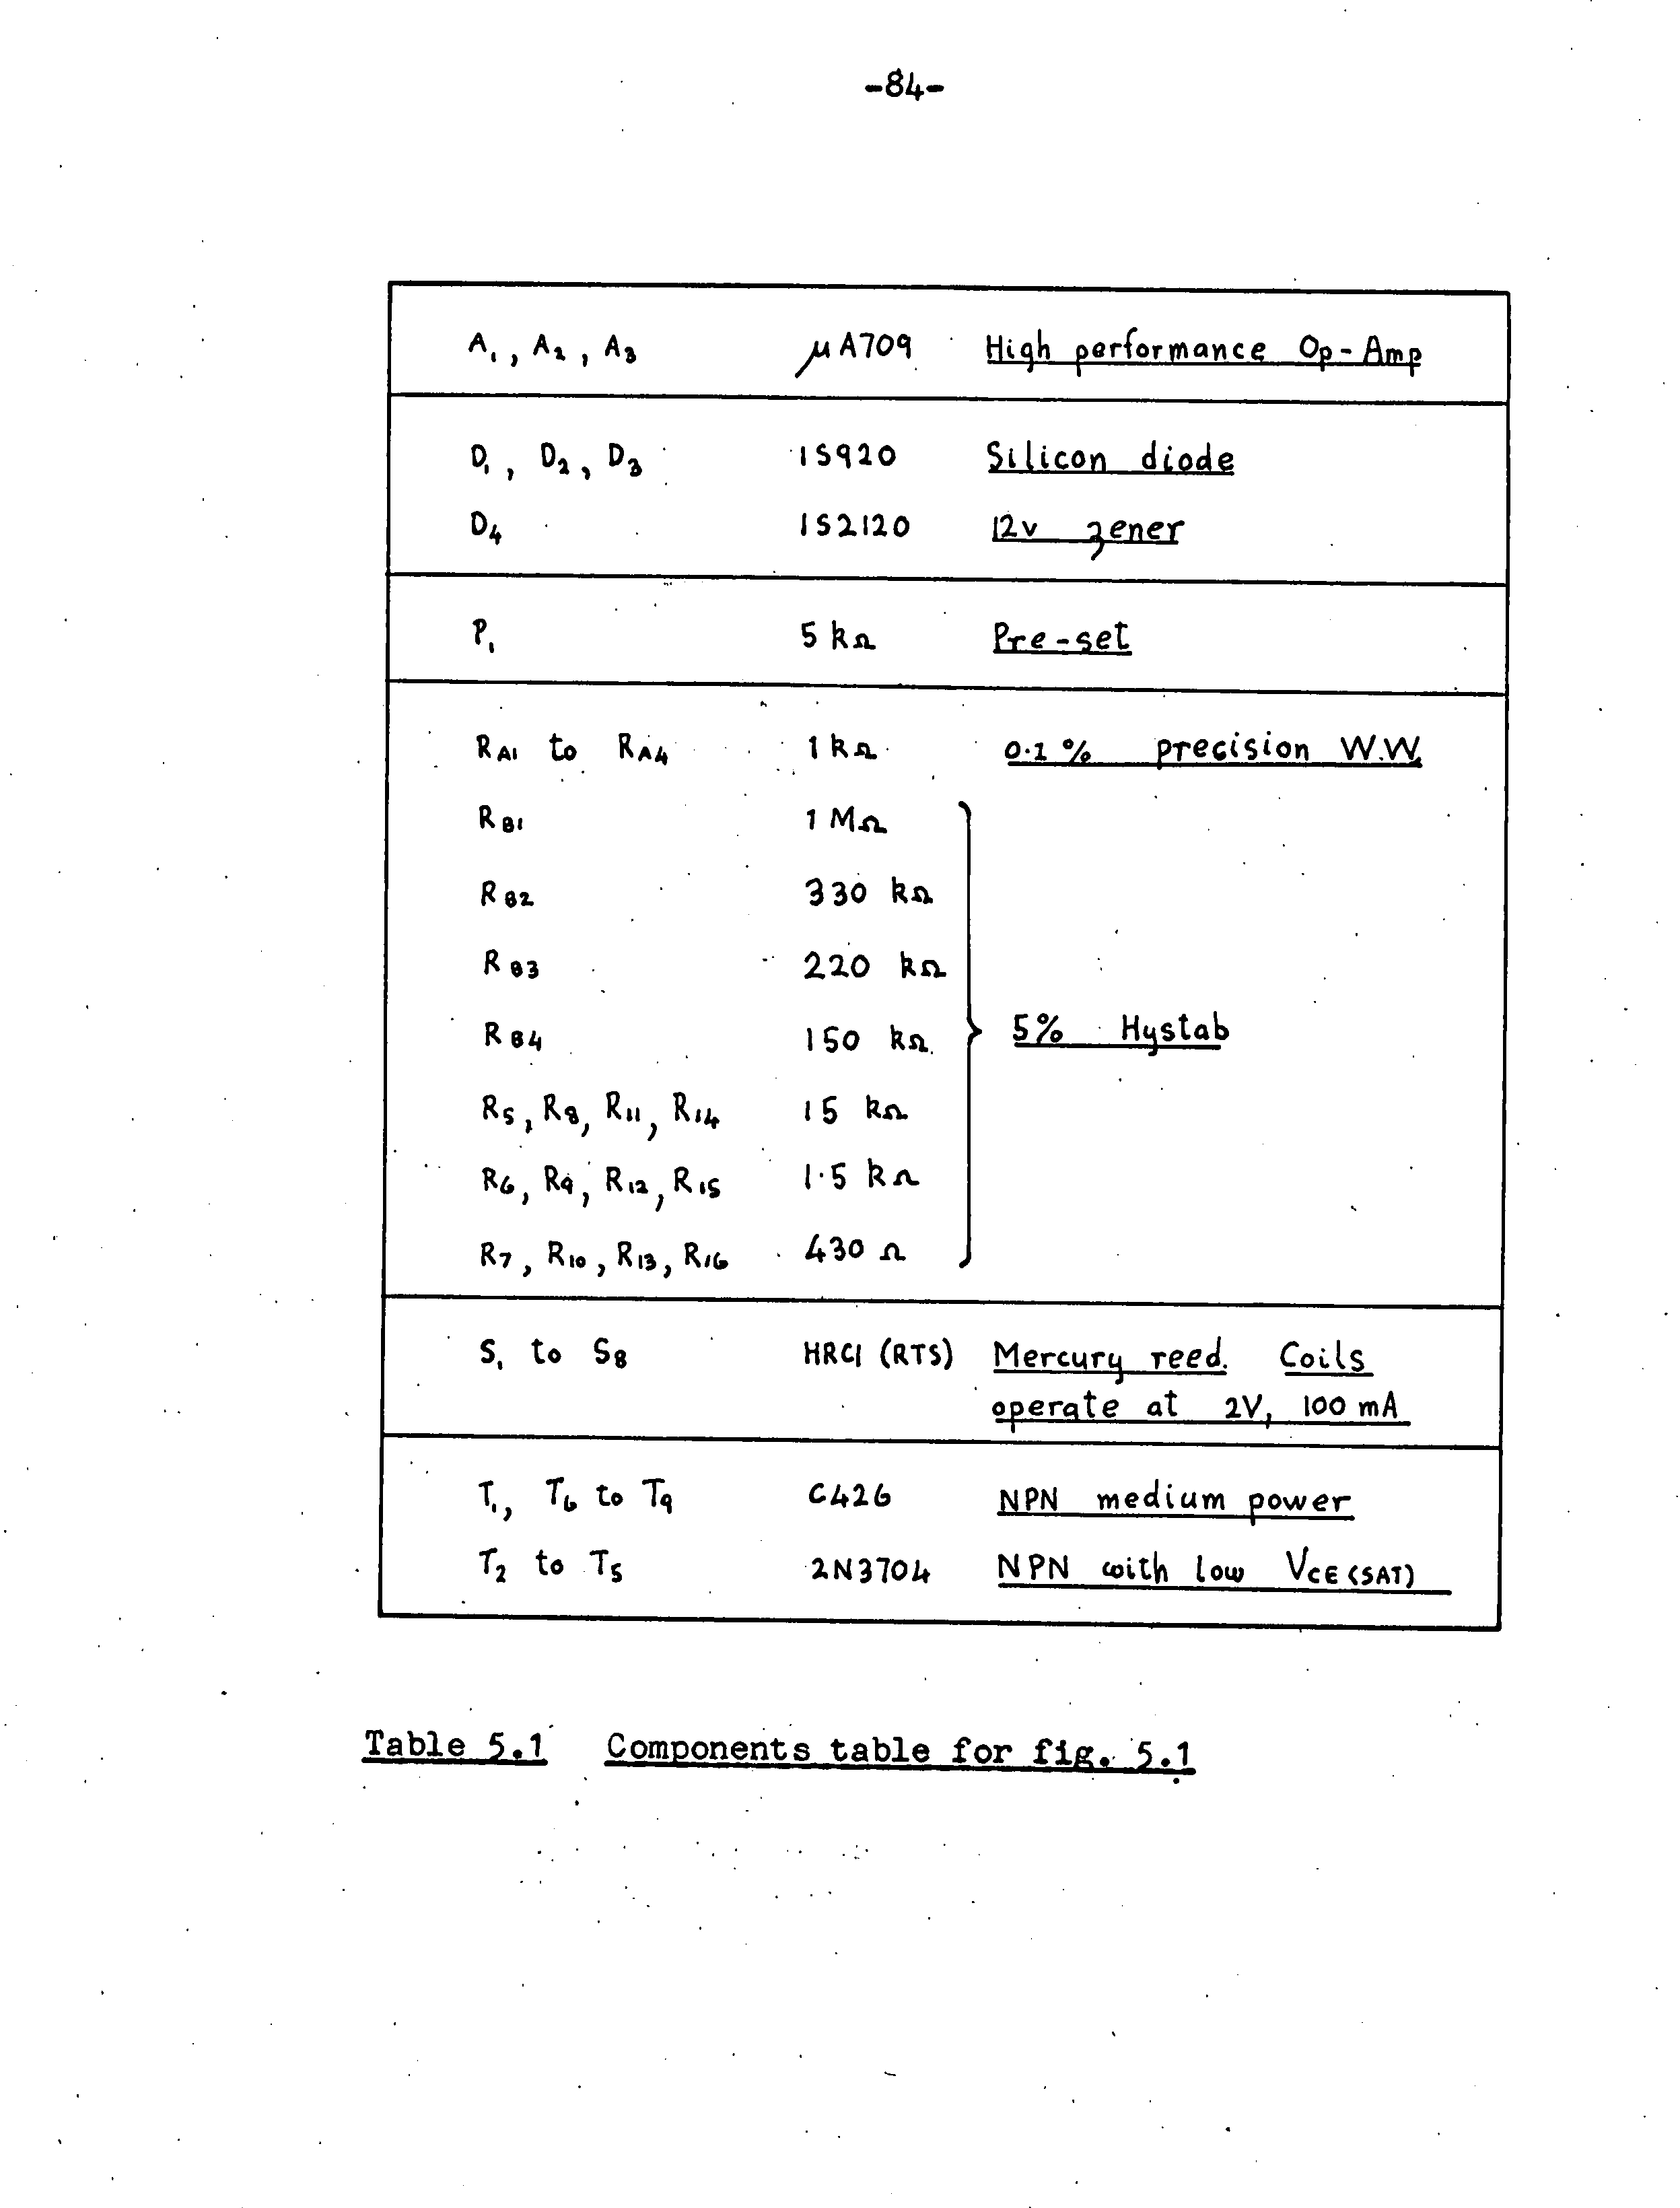 -84-
A1, A2, A3 μA709 High performance Op-Amp
D1, D2, D3 1S920 Silicon diode
D4 1S2120 12v zener
P1 5 kΩ Pre-set
RA1 to RA4 1 kΩ 0.1 % precision W.W.
RB1 1 MΩ
RB2 330 kΩ
RB3 220 kΩ
RB4 150 kΩ 5% Hystab
R5, R8, R11, R14 15 kΩ
R6, R9, R12, R15 1.5 kΩ
R7, R10, R13, R16 430 Ω
S1 to S8 HRC1 (RTS) Mercury reed. Coils
operate at 2V, 100 mA
T1, T6 to T9 C426 NPN medium power
T2 to T5 2N3704 NPN with low VCE(SAT)
Table 5.1 Components table for fig. 5.1